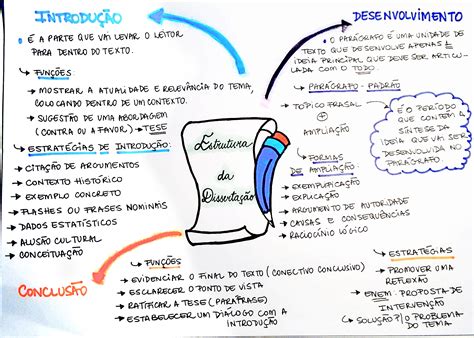 INTRODUÇÃO
• É A PARTE QUE VAI LEVAR O LEITOR
PARA DENTRO DO TEXTO.
→ FUNÇÕES
→ MOSTRAR A ATUALIDADE E RELEVÂNCIA DO TEMA,
COLOCANDO DENTRO DE UM CONTEXTO.
→ SUGESTÃO DE UMA ABORDAGEM
(CONTRA OU A FAVOR) → TESE
→ ESTRATÉGIAS DE INTRODUÇÃO:
→ CITAÇÃO DE ARGUMENTOS
→ CONTEXTO HISTÓRICO
→ EXEMPLO CONCRETO
→ FLASHES OU FRASES NOMINAIS
→ DADOS ESTATÍSTICOS
→ ALUSÃO CULTURAL
→ CONCEITUAÇÃO
Estrutura
da
Dissertação
DESENVOLVIMENTO
• O PARÁGRAFO É UMA UNIDADE DE
TEXTO QUE DESENVOLVE APENAS 1
IDEIA PRINCIPAL QUE DEVE SER ARTICU-
LADA COM O TODO.
→ PARÁGRAFO-PADRÃO
→ TÓPICO FRASAL
+
AMPLIAÇÃO
É O PERÍODO
QUE CONTÉM A
SÍNTESE DA
IDEIA QUE VAI SER
DESENVOLVIDA NO
PARÁGRAFO.
→ FORMAS
DE AMPLIAÇÃO:
→ EXEMPLIFICAÇÃO
→ EXPLICAÇÃO
→ ARGUMENTO DE AUTORIDADE
→ CAUSAS E CONSEQUÊNCIAS
→ RACIOCÍNIO LÓGICO
CONCLUSÃO
→ FUNÇÕES
→ EVIDENCIAR O FINAL DO TEXTO (CONECTIVO CONCLUSIVO)
→ ESCLARECER O PONTO DE VISTA
→ RATIFICAR A TESE (PARÁFRASE)
→ ESTABELECER UM DIÁLOGO COM A
INTRODUÇÃO
→ ESTRATÉGIAS
→ PROMOVER UMA
REFLEXÃO
→ ENEM - PROPOSTA DE
INTERVENÇÃO
↳ SOLUÇÃO P/ O PROBLEMA
DO TEMA